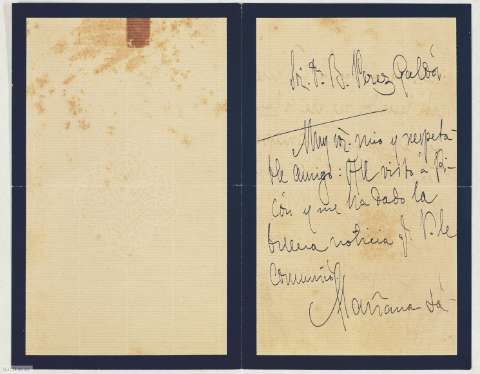 Sr. D. B. Perez Galdós
Muy sr. mio y respeta
ble amigo: He visto á Pi-
cón y me ha dado la
buena noticia q. V. le
comunicó
Mañana sá-